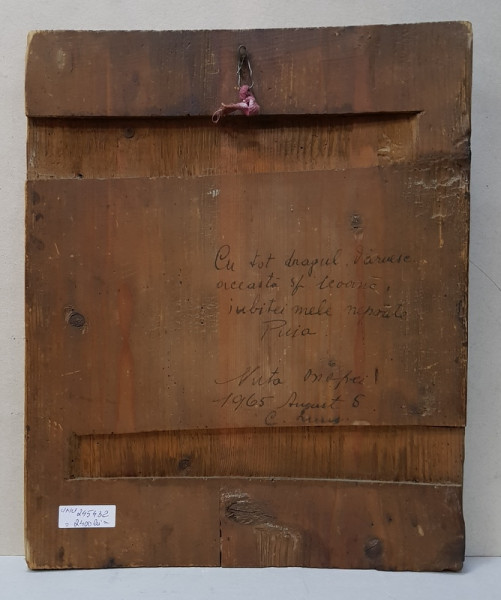 Cu tot dragul dăruesc
această sf Icoană,
iubitei mele nepoate
Puia
Nuța
1965 August 5
C.
245432
2400 lei